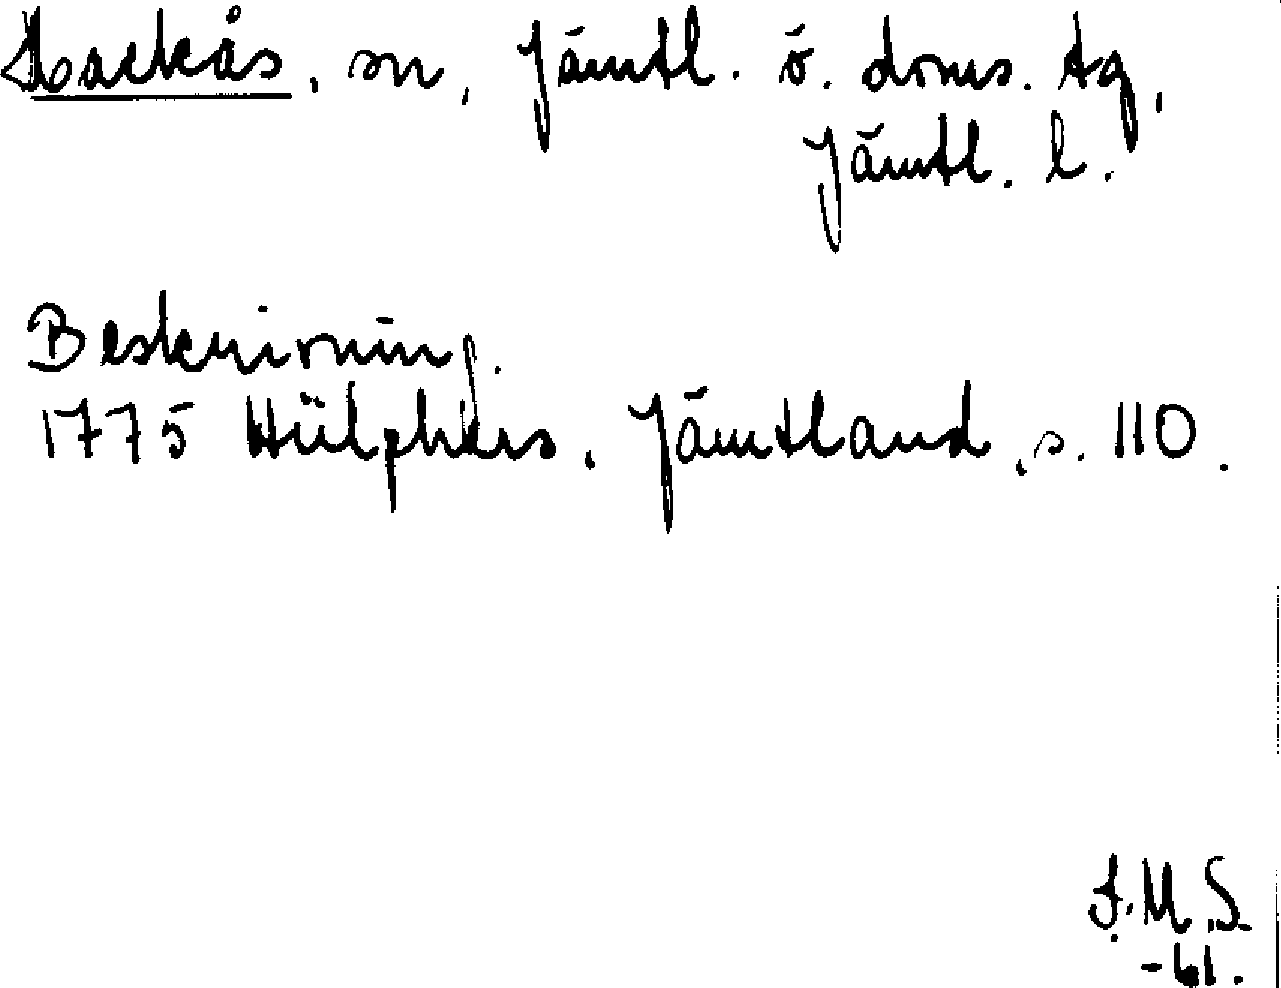 Hackås, sn, Jämtl. ö. doms. tg,
Jämtl. l.
Beskrivning.
1775 Hülphers, Jämtland, s. 110.
J.M.S.
-61.